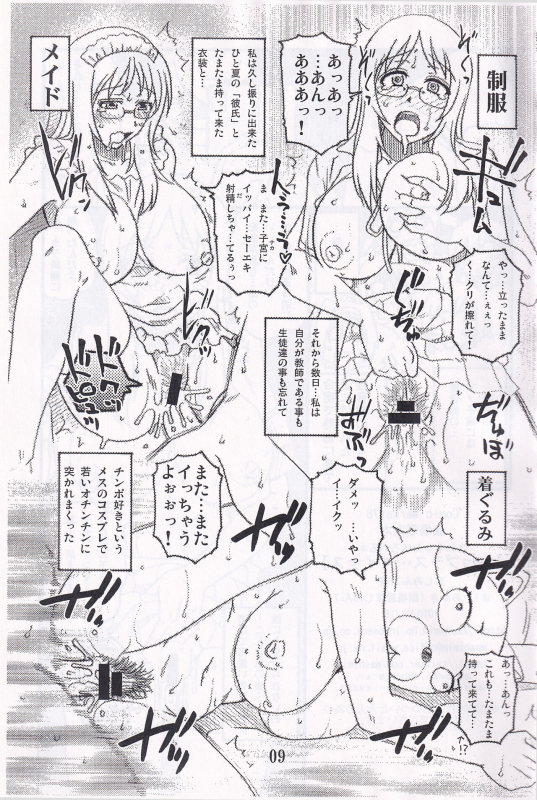 制服
あっあっ
…あんっ
あああっ!
ギュム
やっ…立ったまま
なんて…ぇぇっ
く…クリが擦れて!
私は久し振りに出来た
ひと夏の「彼氏」と
たまたま持って来た
衣装と…
メイド
ま また…子宮に
ナカ
イッパイ…セーエキ
だ
射精しちゃ…てるぅっ
それから数日…私は
自分が教師である事も
生徒達の事も忘れて
ぢゅぼ
着ぐるみ
ダメッ …いやっ
イ…イクッ
また…また
イっちゃう
よぉぉっ!
チンポ好きという
メスのコスプレで
若いオチンチンに
突かれまくった
あっ…あんっ
これも…たまたま
持って来てて…
!?
09